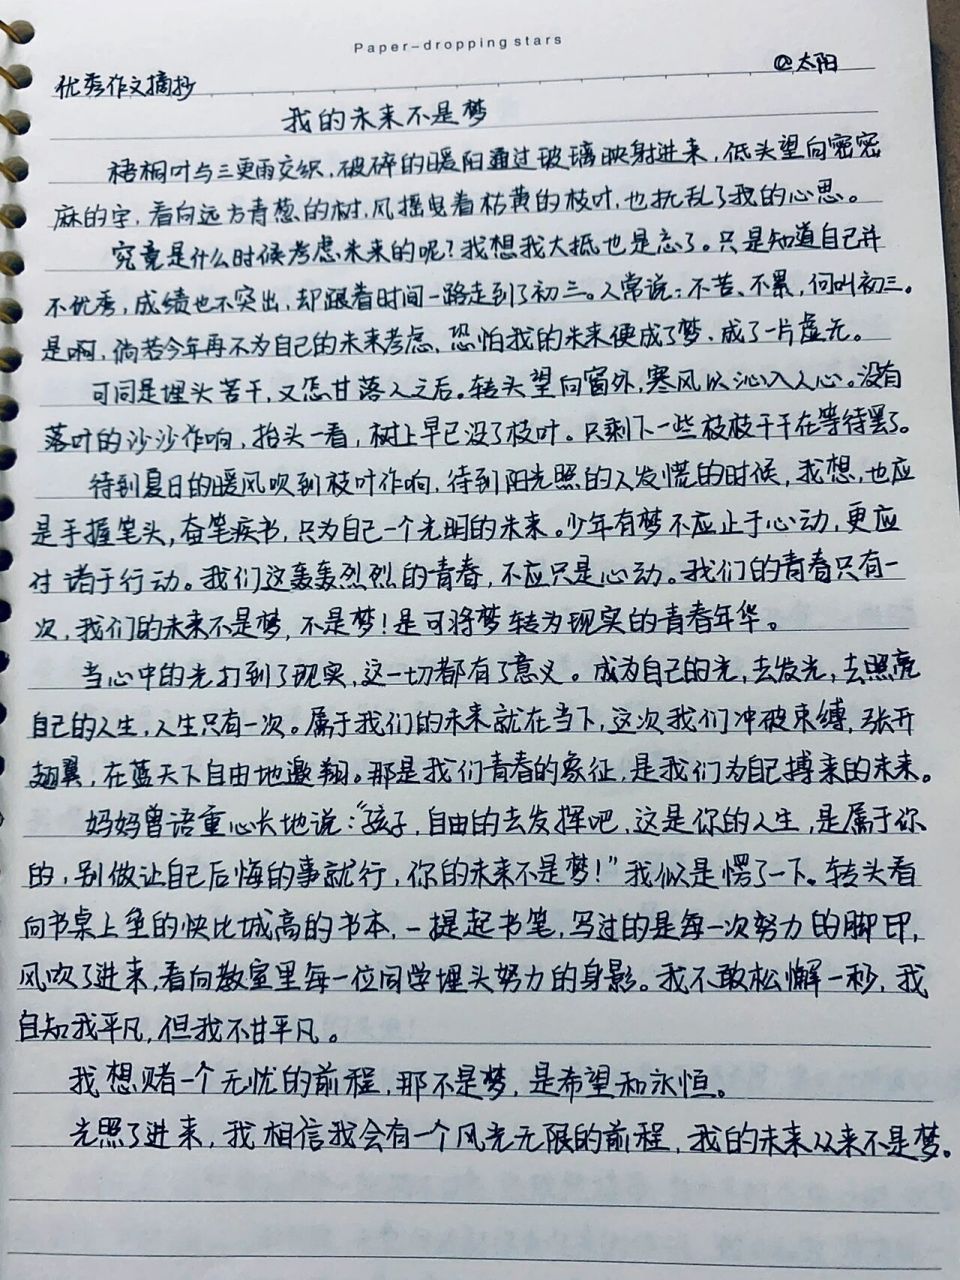 Paper-dropping stars
优秀作文摘抄 @太阳
我的未来不是梦
梧桐叶与三更雨交织，破碎的暖阳通过玻璃映射进来，低头望向密密
麻的字，看向远方青葱的树，风摇曳着枯黄的枝叶，也扰乱了我的心思。
究竟是什么时候考虑未来的呢？我想我大抵也是忘了。只是知道自己并
不优秀，成绩也不突出，却跟着时间一路走到了初三。人常说：不苦、不累，何叫初三。
是啊，倘若今年再不为自己的未来考虑，恐怕我的未来便成了梦、成了一片虚无。
可同是埋头苦干，又怎甘落人之后。转头望向窗外，寒风以沁入人心。没有
落叶的沙沙作响，抬头一看，树上早已没了枝叶。只剩下一些枝枝干干在等待罢了。
待到夏日的暖风吹到枝叶作响，待到阳光照的人发慌的时候，我想，也应
是手握笔头，奋笔疾书，只为自己一个光明的未来。少年有梦不应止于心动，更应
付诸于行动。我们这轰轰烈烈的青春，不应只是心动。我们的青春只有一
次，我们的未来不是梦，不是梦！是可将梦转为现实的青春年华。
当心中的光打到了现实，这一切都有了意义。成为自己的光，去发光，去照亮
自己的人生，人生只有一次。属于我们的未来就在当下，这次我们冲破束缚，张开
翅翼，在蓝天下自由地遨翔。那是我们青春的象征，是我们为自己搏来的未来。
妈妈曾语重心长地说：“孩子，自由的去发挥吧，这是你的人生，是属于你
的，别做让自己后悔的事就行，你的未来不是梦！”我似是愣了一下。转头看
向书桌上垒的快比城高的书本，一提起书笔，写过的是每一次努力的脚印，
风吹了进来，看向教室里每一位同学埋头努力的身影。我不敢松懈一秒，我
自知我平凡，但我不甘平凡。
我想赌一个无忧的前程，那不是梦，是希望和永恒。
光照了进来，我相信我会有一个风光无限的前程，我的未来从来不是梦。